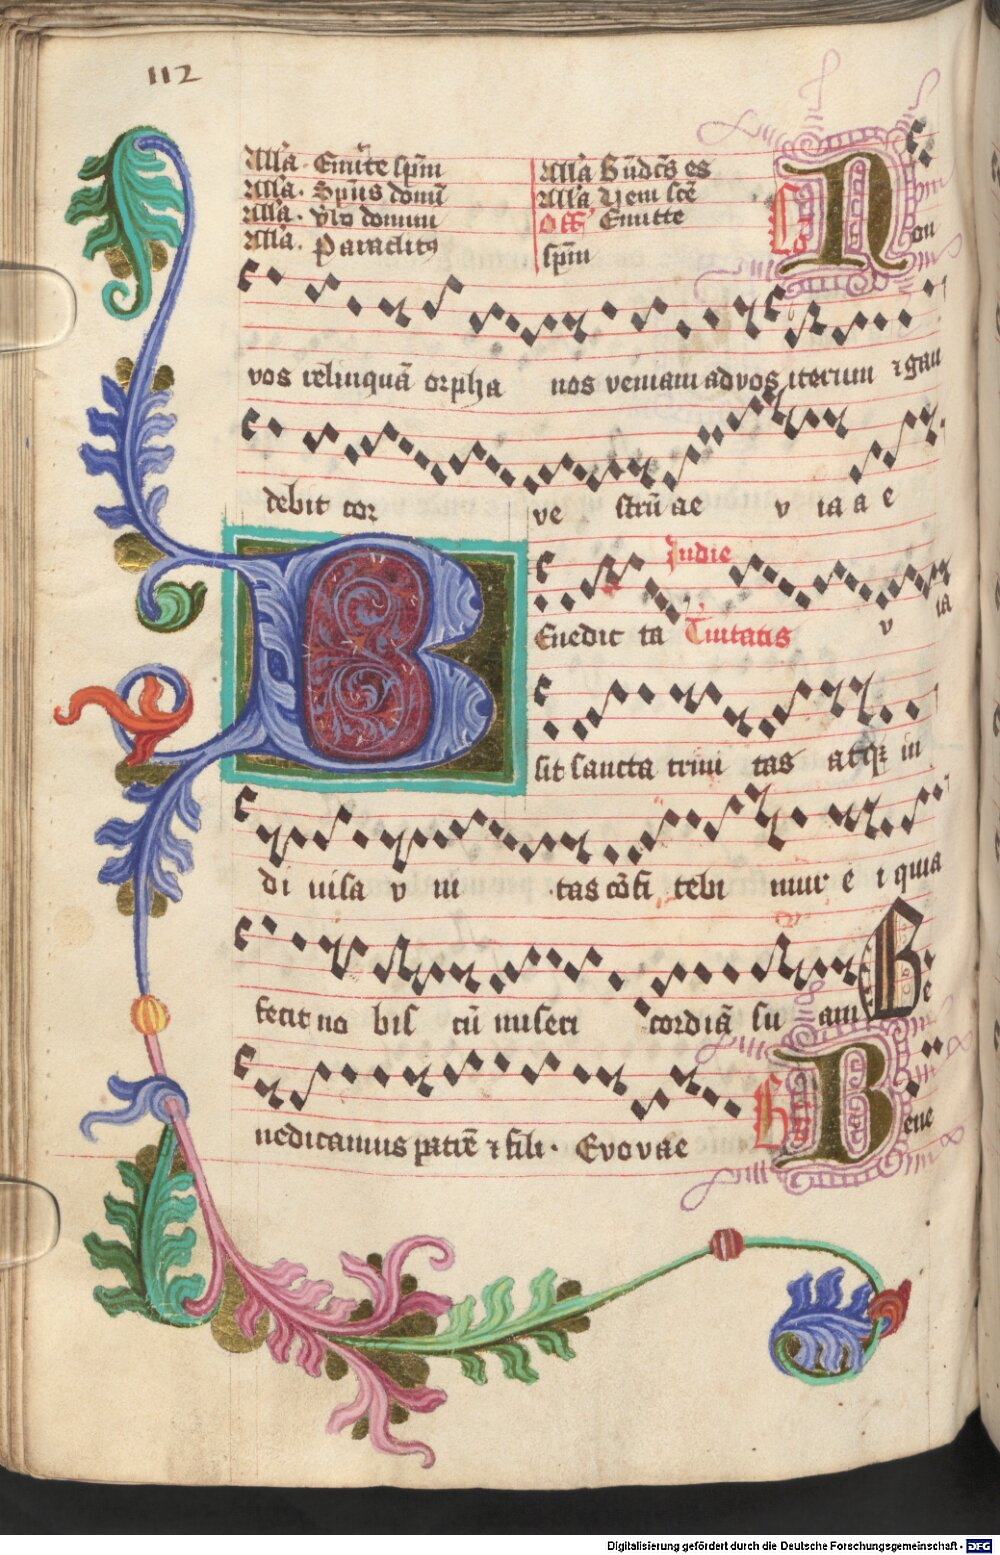 112
All'a. Emitte spm̄
All'a. Sp̄us domī
All'a. Vlo domum
All'a. Paraclitꝰ
All'a Bn̄dc̄s es
All'a Veni sc̄e
Off' Emitte
spm̄
Co Non
vos relinquā orpha nos veniam ad vos iterum ⁊ gau
debit cor ve strū ae v ia a e
Benedic ta Tinitatis Indie v ia
sit sancta trini tas atqꝫ in
di uisa v ni tas cōfi tebi mur e i quia
fecit no bis cū miseri cordiā su am Be
nedicamus patrē ⁊ fili. Evovae Bene
Digitalisierung gefördert durch die Deutsche Forschungsgemeinschaft - DFG